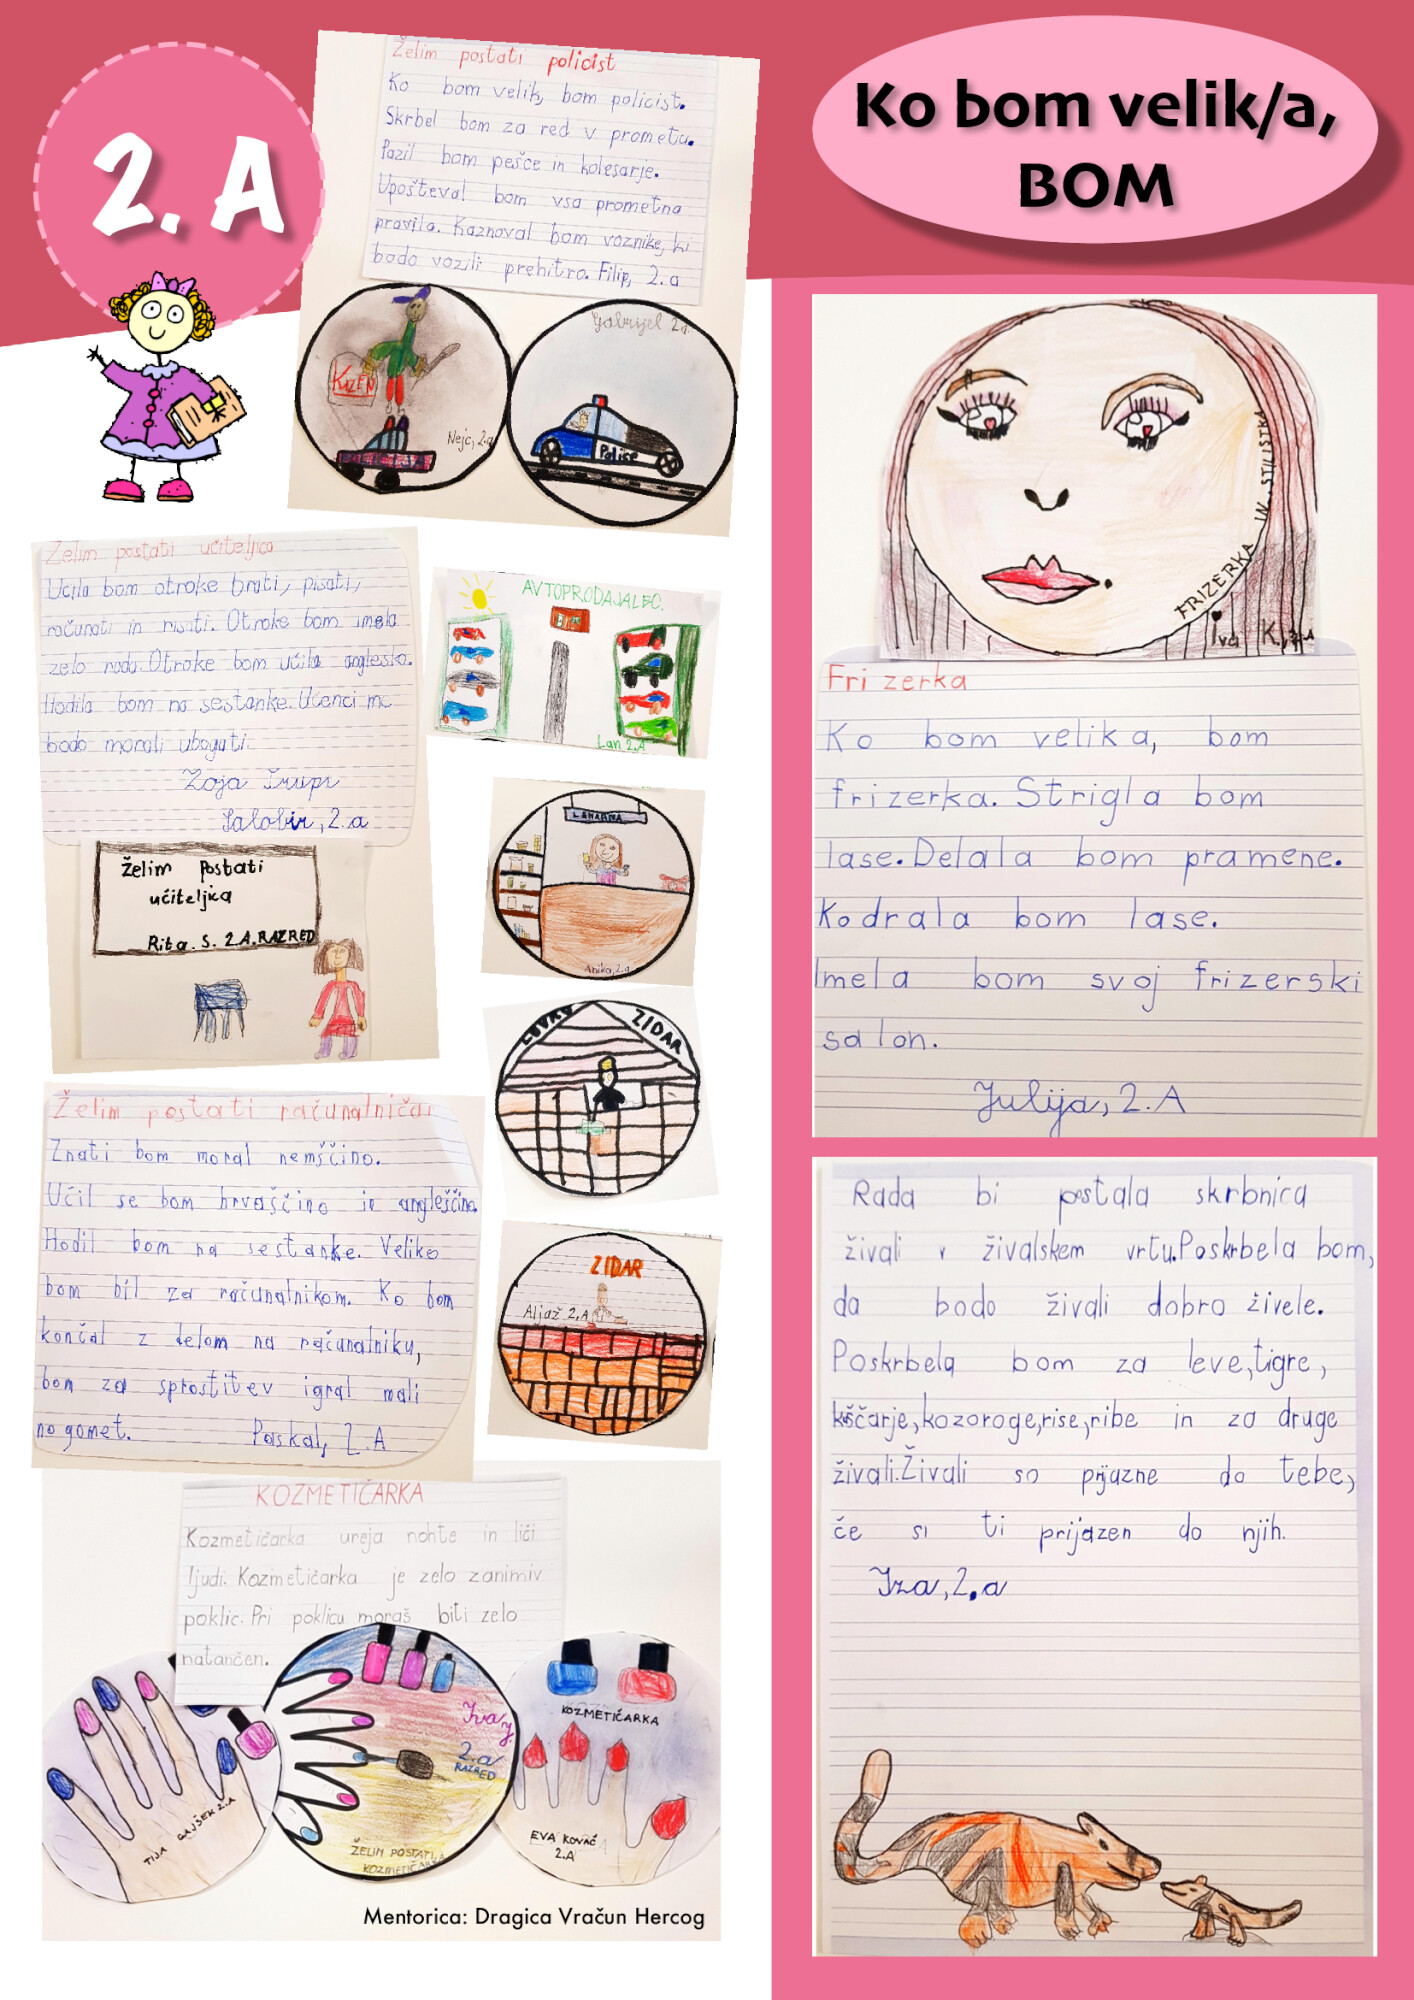 2. A
Ko bom velik/a,
BOM
Želim postati policist
Ko bom velik, bom policist.
Skrbel bom za red v prometu.
Pazil bom pešce in kolesarje.
Upošteval bom vsa prometna
pravila. Kaznoval bom voznike, ki
bodo vozili prehitro. Filip, 2. a
KAZEN
Nejc, 2.a
Gabrijel 2.a
Police
Želim postati učiteljica
Učila bom otroke brati, pisati,
računati in risati. Otroke bom imela
zelo rada. Otroke bom učila anglesko.
Hodila bom na sestanke. Učenci me
bodo morali ubogati.
Zoja
Salobir, 2.a
želim postati
učiteljica
Rita. S. 2.A. RAZRED
AVTOPRODAJALEC.
Lan 2.A
LEKARNA
Anika, 2.a
LOVRO ZIDAR
ZIDAR
Aljaž 2.A
Želim postati računalničar
Znati bom moral nemščino.
Učil se bom hrvaščino in angleščino.
Hodil bom na sestanke. Veliko
bom bil za računalnikom. Ko bom
končal z delom na računalniku,
bom za sprostitev igral mali
nogomet. Paskal, 2.A
KOZMETIČARKA
Kozmetičarka ureja nohte in liči
ljudi. Kozmetičarka je zelo zanimiv
poklic. Pri poklicu moraš biti zelo
natančen.
TIJA GAJŠEK 2.A
Iva J.
2.a
RAZRED
ŽELIM POSTATI
KOZMETIČARKA
KOZMETIČARKA
EVA KOVAČ
2.A
Mentorica: Dragica Vračun Hercog
FRIZERKA IN STILISTKA
Iva K., 2.A
Frizerka
Ko bom velika, bom
frizerka. Strigla bom
lase. Delala bom pramene.
Kodrala bom lase.
Imela bom svoj frizerski
salon.
Julija, 2.A
Rada bi postala skrbnica
živali v živalskem vrtu. Poskrbela bom,
da bodo živali dobro živele.
Poskrbela bom za leve, tigre,
kščarje, kozoroge, rise, ribe in za druge
živali. Živali so prijazne do tebe,
če si ti prijazen do njih.
Iza, 2.a